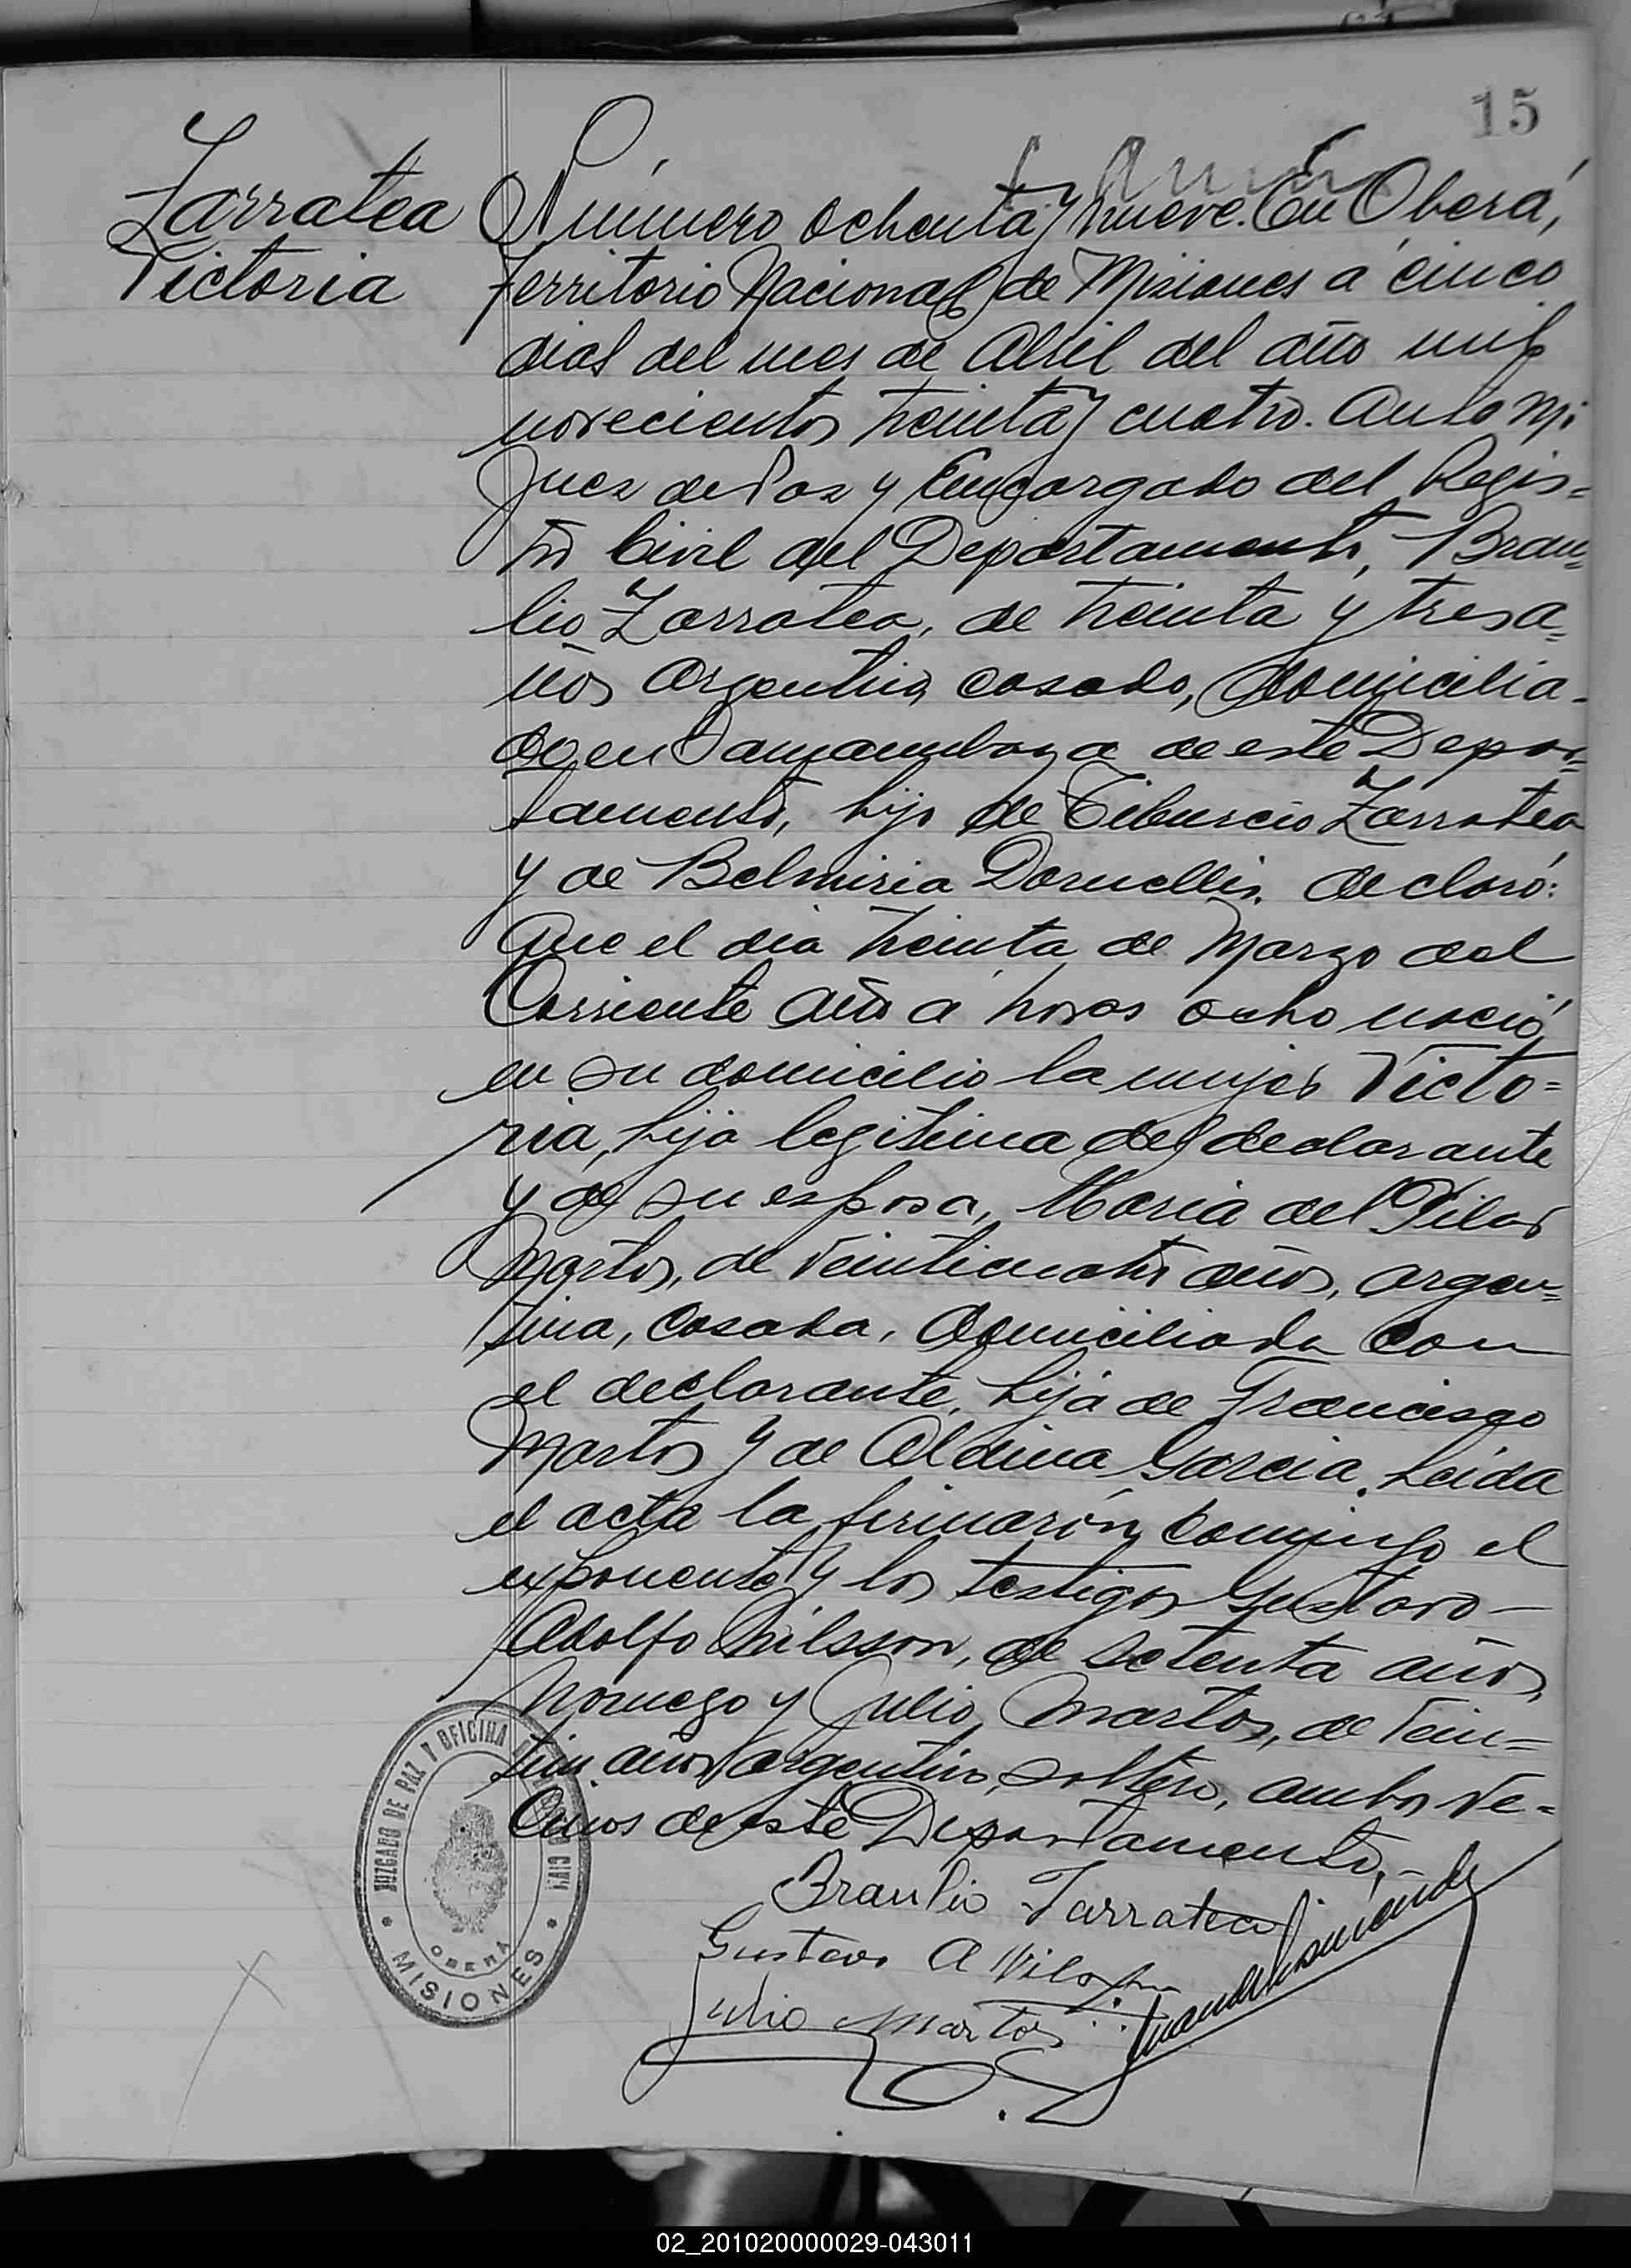 15
Zarratea
Victoria
Número ochenta y nueve. En Oberá,
Territorio Nacional de Misiones a cinco
dias del mes de Abril del año mil
novecientos treinta y cuatro. Ante mi
Juez de Paz y Encargado del Regis=
tro Civil del Departamento, Brau=
lio Zarratea, de treinta y tres a=
ños argentino, casado, domicilia-
do en de este Depar=
tamento, hijo de Tiburcio Zarratea
y de Belmiria Dornellis, declaró:
Que el dia treinta de Marzo del
Corriente año a horas ocho nació
en su domicilio la mujer Victo=
ria, hija legitima del declarante
y de su esposa, Maria del Pilar
Martos, de veinticuatro años, argen=
tina, casada, domiciliada con
el declarante, hija de Francisco
Martos y de Aldina Garcia. Leida
el acta la firmarón conmigo el
exponente y los testigos Gustavo
Adolfo Nilsson, de setenta años,
noruego y Julio Martos, de vein=
tiun años argentino, soltero, ambos ve=
cinos de este Departamento.-
Braulio Zarratea
Gustavo A Nilsson
Julio Martos
JUZGADO DE PAZ Y OFICINA CIVIL
OBERÁ
* MISIONES *
02_201020000029-043011